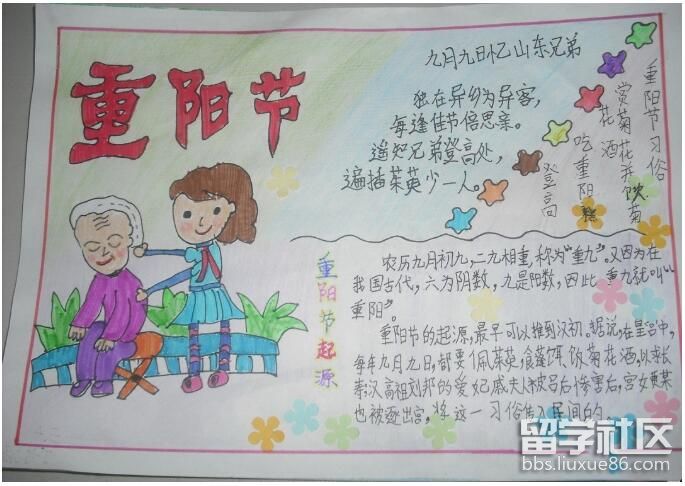 重阳节
九月九日忆山东兄弟
独在异乡为异客，
每逢佳节倍思亲。
遥知兄弟登高处，
遍插茱萸少一人。
重阳节习俗
赏菊花并饮菊
花酒
吃重阳糕
登高
重阳节起源
农历九月初九，二九相重，称为“重九”。又因为在
我国古代，六为阴数，九是阳数，因此重九就叫“
重阳”。
重阳节的起源，最早可以推到汉初。据说，在皇宫中，
每年九月九日，都要佩茱萸，食蓬饵，饮菊花酒，以求长
寿；汉高祖刘邦的爱妃戚夫人被吕后惨害后，宫女贾某
也被逐出宫，将这一习俗传入民间的。
留学社区
bbs.liuxue86.com